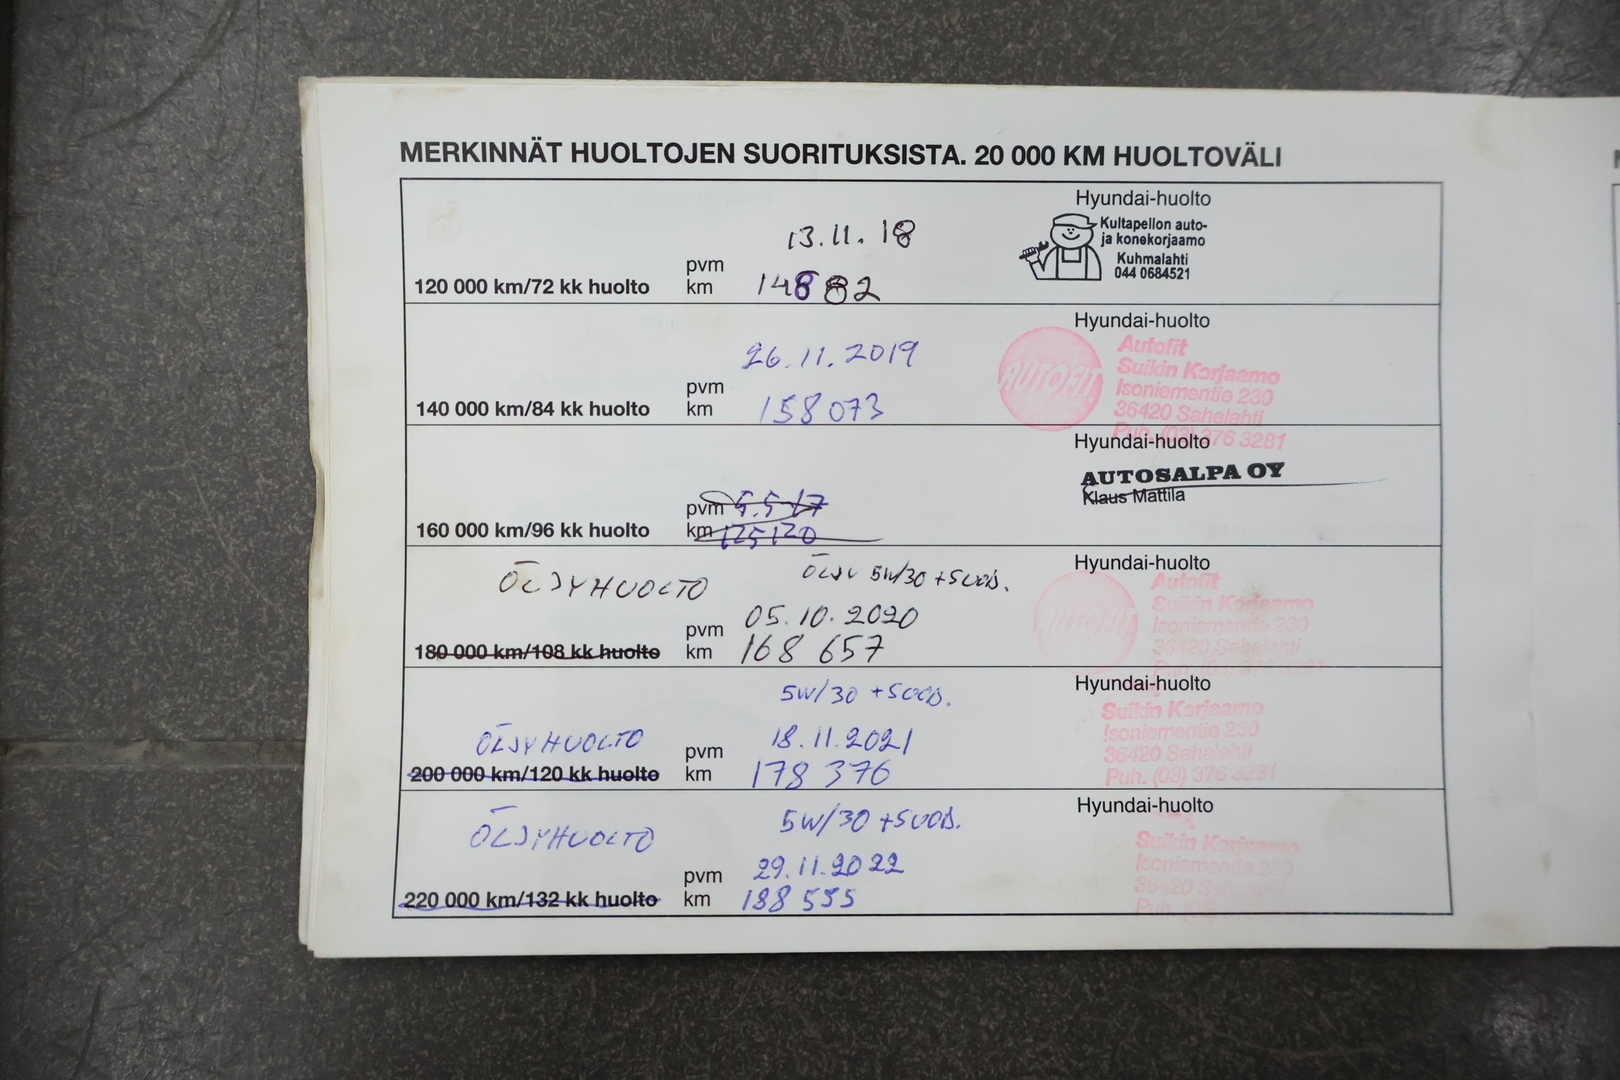 MERKINNÄT HUOLTOJEN SUORITUKSISTA. 20 000 KM HUOLTOVÄLI
Hyundai-huolto
13.11.18
Kultapellon auto-
ja konekorjaamo
Kuhmalahti
044 0684521
pvm
120 000 km/72 kk huolto km 148
Hyundai-huolto
26.11.2019
AUTOFIT
Autofit
Suikin Korjaamo
Isoniementie 230
36420 Sahalahti
Puh. (03) 376 3281
pvm
140 000 km/84 kk huolto km 158 073
Hyundai-huolto
AUTOSALPA OY
Klaus Mattila
pvm 5.5-17
160 000 km/96 kk huolto km 125120
Hyundai-huolto
ÖLJYHUOLTO ÖLJY 5W/30 +SUOD.
AUTOFIT
Autofit
Suikin Korjaamo
Isoniementie 230
36420 Sahalahti
Puh. (03) 376 3281
pvm 05.10.2020
180 000 km/108 kk huolto km 168 657
Hyundai-huolto
5W/30 +SUOD.
Suikin Korjaamo
Isoniementie 230
36420 Sahalahti
Puh. (03) 376 3281
ÖLJYHUOLTO pvm 18.11.2021
200 000 km/120 kk huolto km 178 376
Hyundai-huolto
ÖLJYHUOLTO 5W/30 +SUOD.
Suikin Korjaamo
Isoniementie 230
36420 Sahalahti
pvm 29.11.2022
220 000 km/132 kk huolto km 188 555